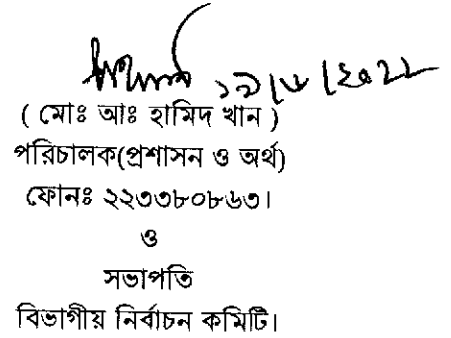 ( মোঃ আঃ হামিদ খান )
পরিচালক(প্রশাসন ও অর্থ)
ফোনঃ ২২৩৩৮০৮৬৩।
ও
সভাপতি
বিভাগীয় নির্বাচন কমিটি।